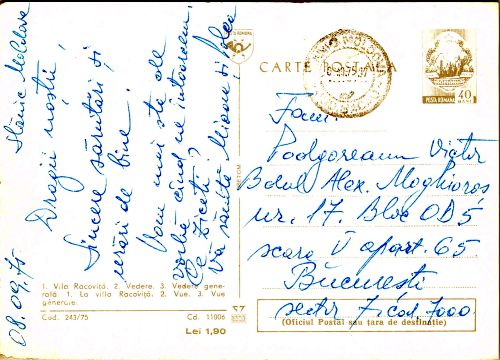 Slănic Moldova
08.09.75
Dragii noștri,
Sincere sărutări și
urări de bine.
Vom mai sta de
vorbă cînd ne întoarcem.
Ce ziceți?
Vă sărută
1. Vila Racoviță. 2. Vedere. 3. Vedere gene-
rală 1. La villa Racoviță. 2. Vue. 3. Vue
générale.
Cod. 243/75 Cd. 11006
Lei 1,90
CARTE POȘTALA
POSTA ROMANA 40
Fam.
Podgoreanu Victor
Bdul Alex. Moghioroș
nr. 17. Bloc OD5
scara V apart. 65
București
sector 7 cod. 7000
(Oficiul Postal sau țara de destinație)